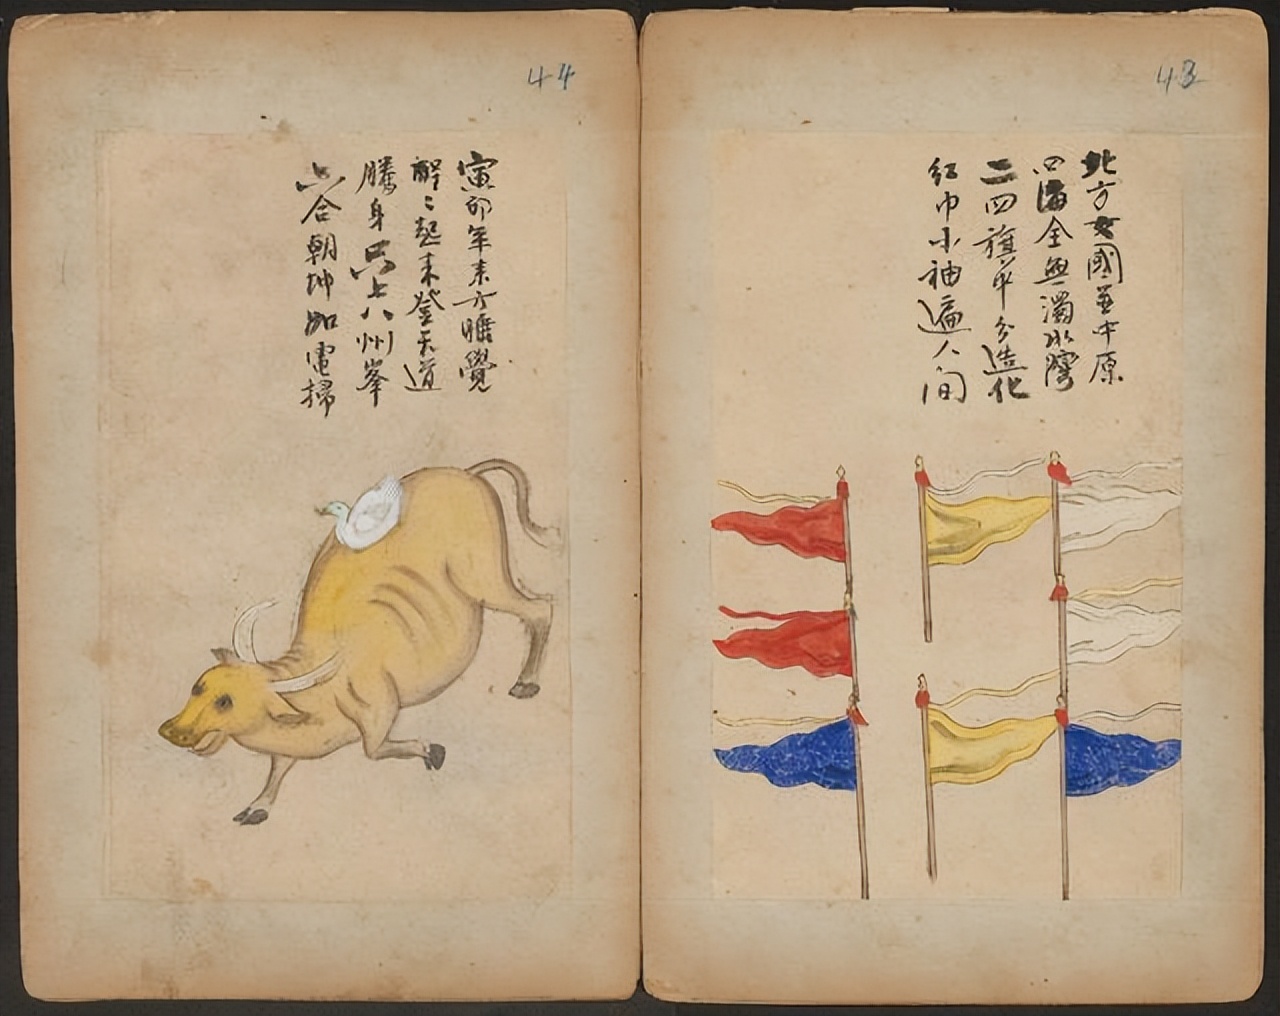 43
北方女國中原
四海全無濁水
二四旗平分造化
紅巾小袖遍人间
44
寅卯年来方睡覺
醒々起来登天道
騰身只上八州峯
六合朝坤如電掃